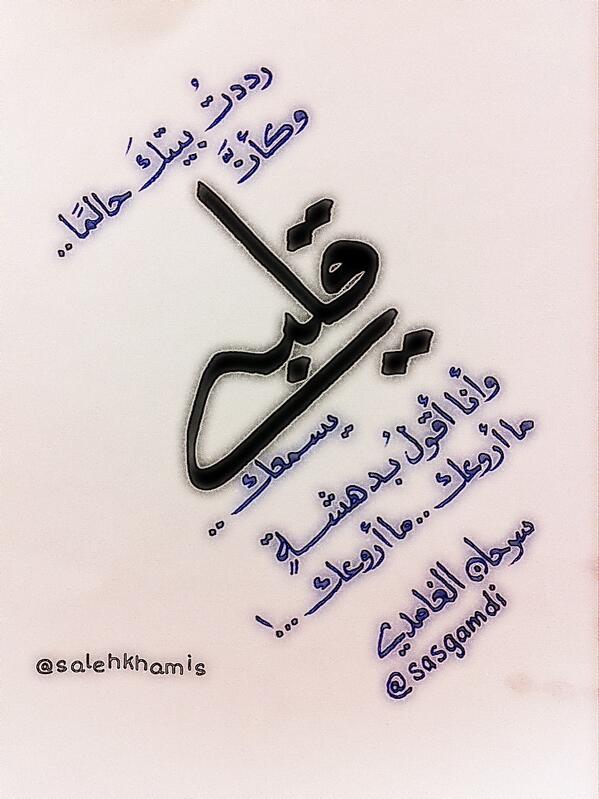 رددتُ بيتكَ حالمًا..
وكأنَّ
قلبي
يسمعك ..
وأنا أقول بُدهشةٍ
ما أروعك .. ما أروعك ...!
سرحان الغامدي
@sasgamdi
@salehkhamis